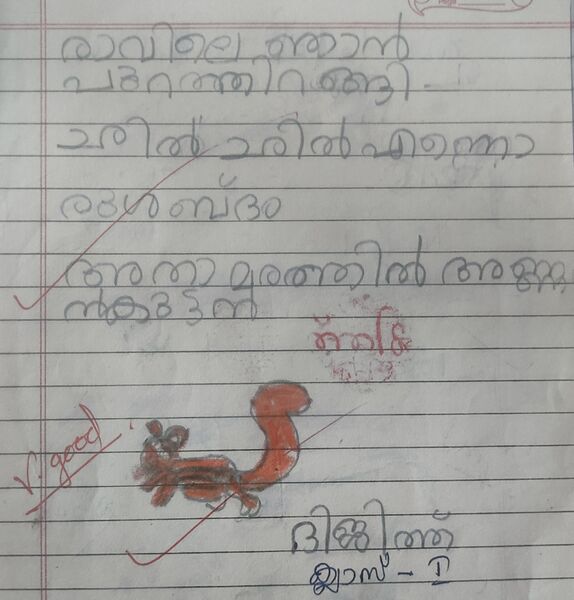 രാവിലെ ഞാൻ
പുറത്തിറങ്ങി
ചരിൽ ചരിൽ എന്നൊ
രുശബ്ദം
അതാ മരത്തിൽ അണ്ണാ
ൻകുട്ടൻ
v. good
ദിജിത്ത്
ക്ലാസ് - I